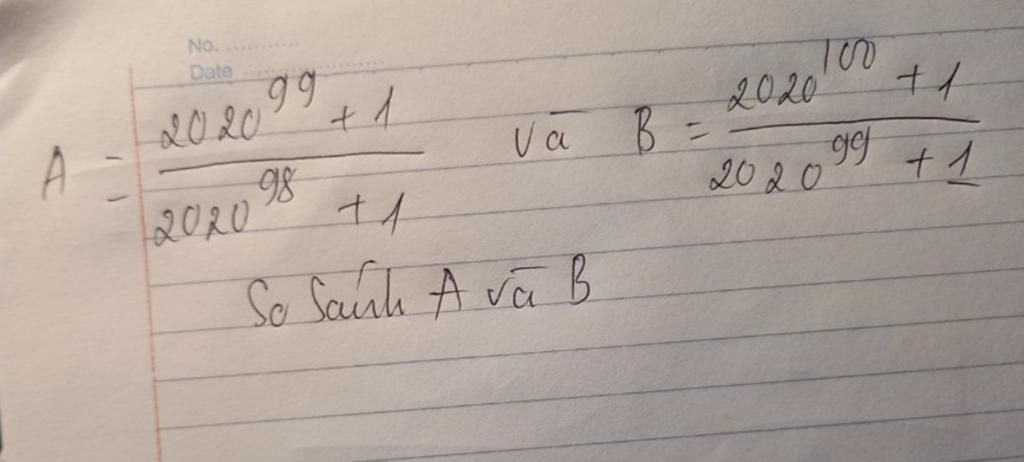 No. ............
Date ........................
A = \frac{2020^{99} + 1}{2020^{98} + 1} và B = \frac{2020^{100} + 1}{2020^{99} + 1}
So Sánh A và B